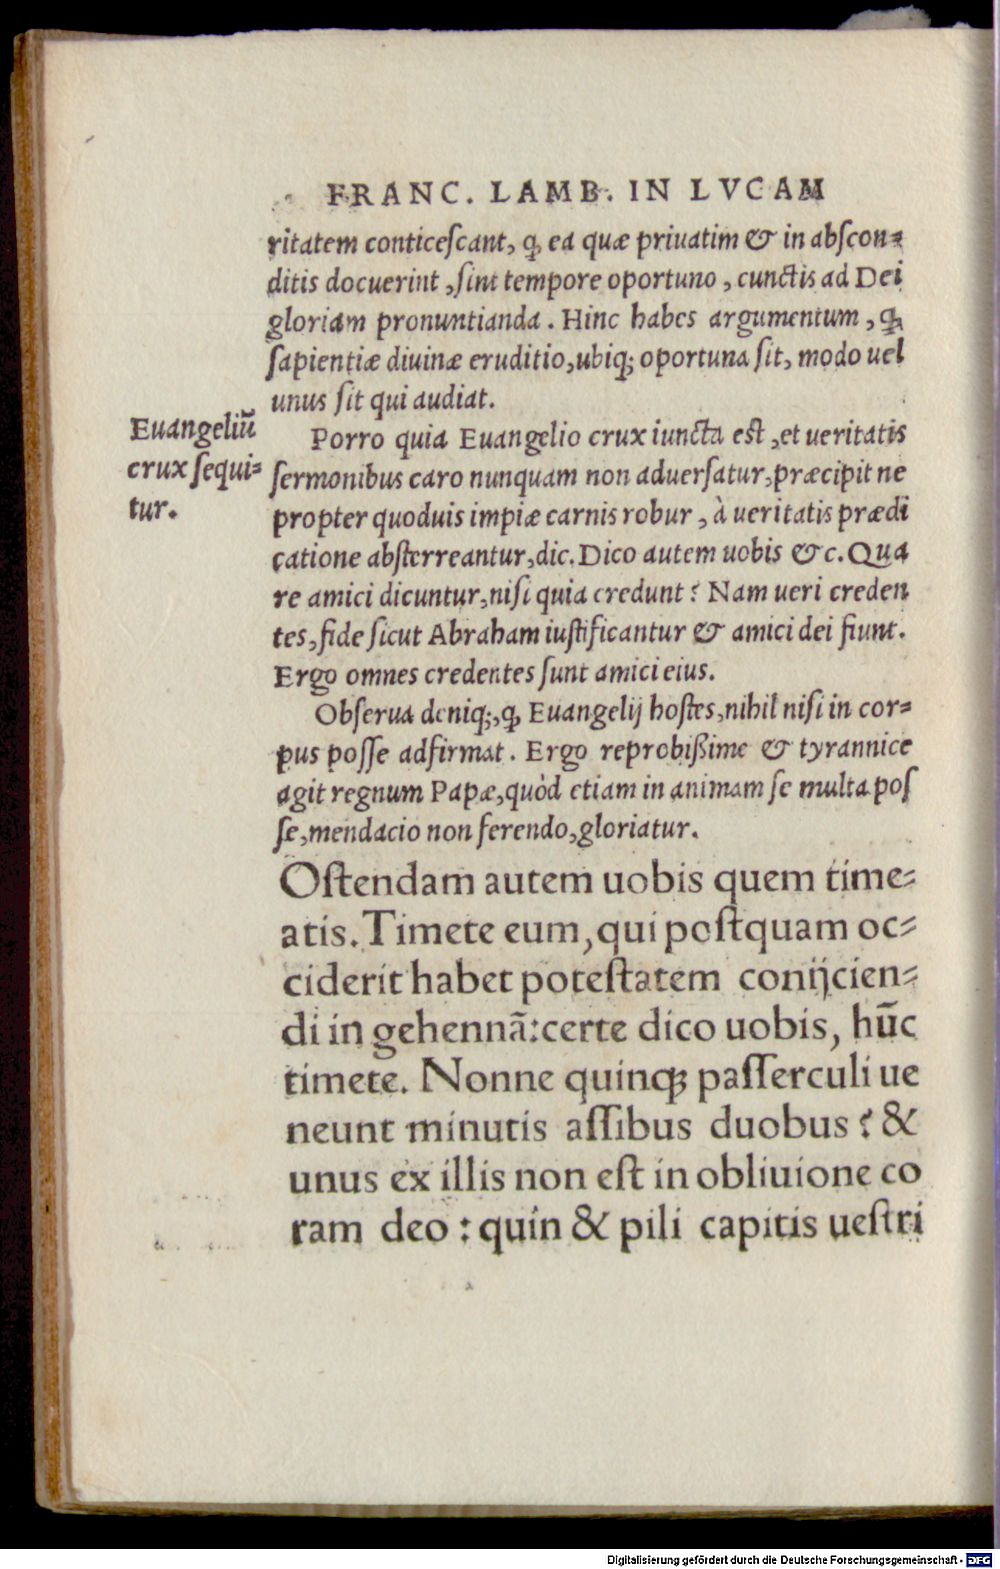 FRANC. LAMB. IN LVCAM
ritatem conticeſcant, ꝙ ea quæ priuatim & in abſcon⸗
ditis docuerint, ſint tempore oportuno, cunctis ad Dei
gloriam pronuntianda. Hinc habes argumentum, ꝙ
ſapientiæ diuinæ eruditio, ubiqꝫ oportuna ſit, modo uel
unus ſit qui audiat.
Euangeliū
crux ſequi⸗
tur.
Porro quia Euangelio crux iuncta eſt, et ueritatis
ſermonibus caro nunquam non aduerſatur, præcipit ne
propter quoduis impiæ carnis robur, à ueritatis prædi
catione abſterreantur, dic. Dico autem uobis &c. Qua
re amici dicuntur, niſi quia credunt? Nam ueri creden
tes, fide ſicut Abraham iuſtificantur & amici dei fiunt.
Ergo omnes credentes ſunt amici eius.
Obſerua deniqꝫ, ꝙ Euangelij hoſtes, nihil niſi in cor⸗
pus poſſe adfirmat. Ergo reprobißime & tyrannice
agit regnum Papæ, quòd etiam in animam ſe multa poſ
ſe, mendacio non ferendo, gloriatur.
Oſtendam autem uobis quem time⸗
atis. Timete eum, qui poſtquam oc⸗
ciderit habet poteſtatem conijcien⸗
di in gehennã: certe dico uobis, hūc
timete. Nonne quinqꝫ paſſerculi ue
neunt minutis aſſibus duobus? &
unus ex illis non eſt in obliuione co
ram deo: quin & pili capitis ueſtri
Digitalisierung gefördert durch die Deutsche Forschungsgemeinschaft - DFG